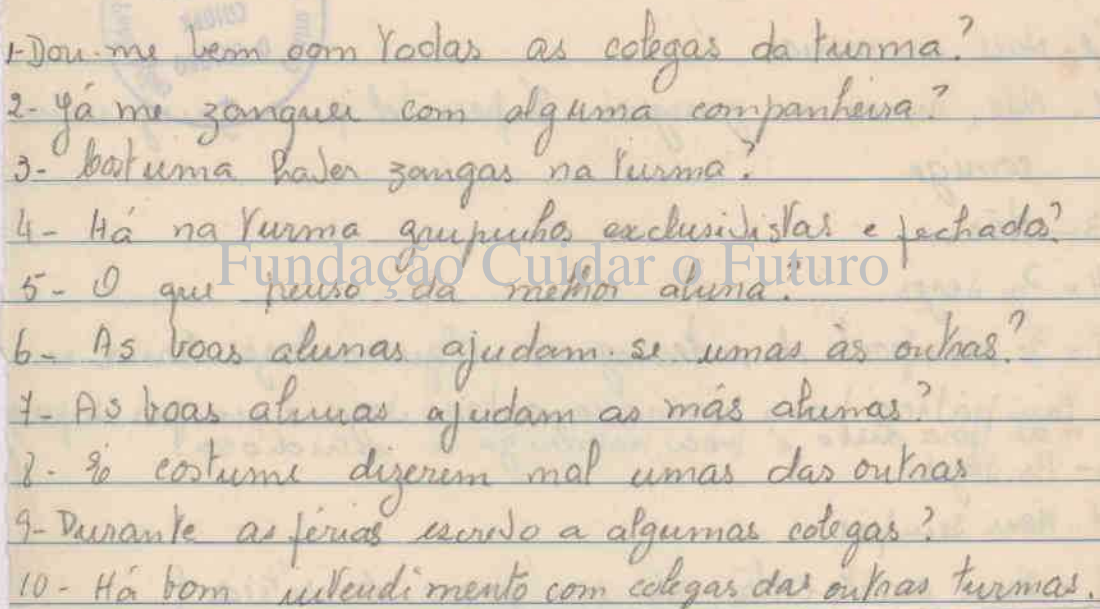 1-Dou-me bem com todas as colegas da turma?
2- Já me zanguei com alguma companheira?
3- Costuma haver zangas na turma?
4- Há na turma grupinhos exclusivistas e fechados?
Fundação Cuidar o Futuro
5- O que penso da melhor aluna?
6- As boas alunas ajudam-se umas às outras?
7- As boas alunas ajudam as más alunas?
8- É costume dizerem mal umas das outras
9- Durante as férias escrevo a algumas colegas?
10- Há bom intendimento com colegas das outras turmas.